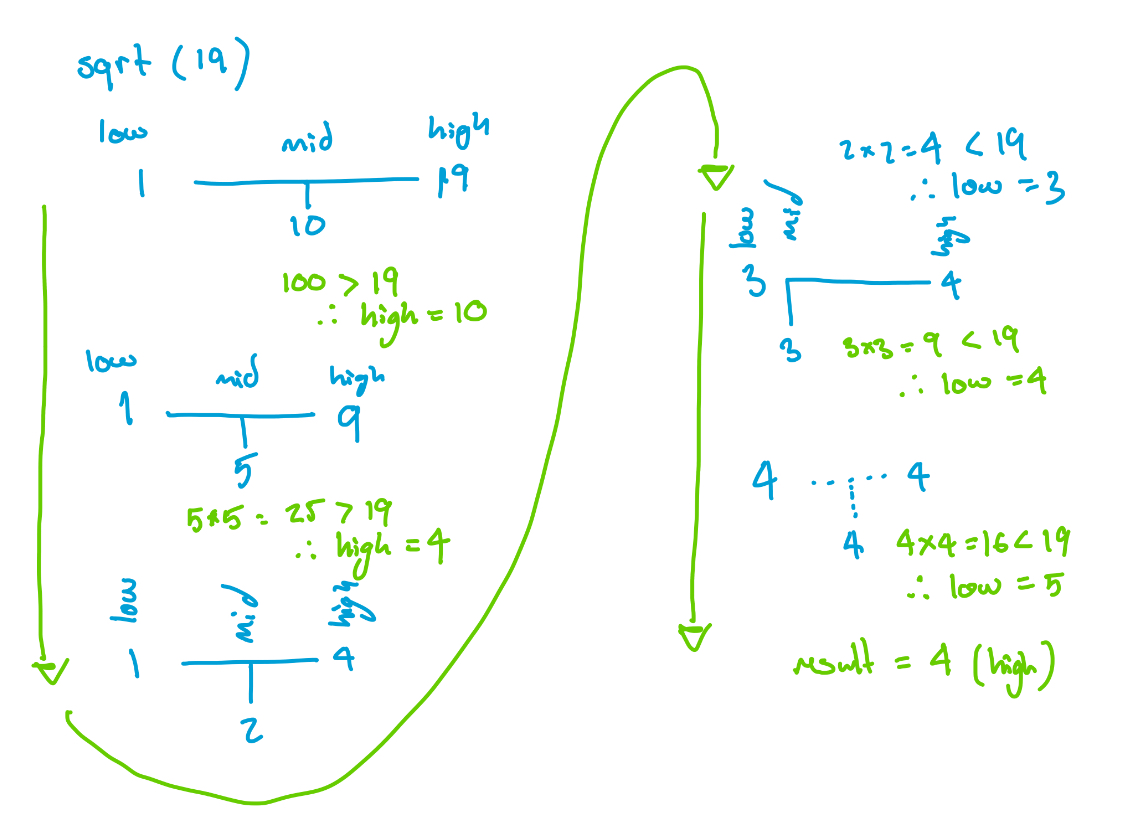 sqrt (19)
low mid high
1 19
10
100 > 19
∴ high = 10
low mid high
1 9
5
5*5 = 25 > 19
∴ high = 4
low mid high
1 4
2
2*2=4 < 19
∴ low = 3
low mid high
3 4
3
3*3= 9 < 19
∴ low = 4
4 4
4
4×4=16<19
∴ low = 5
result = 4 (high)